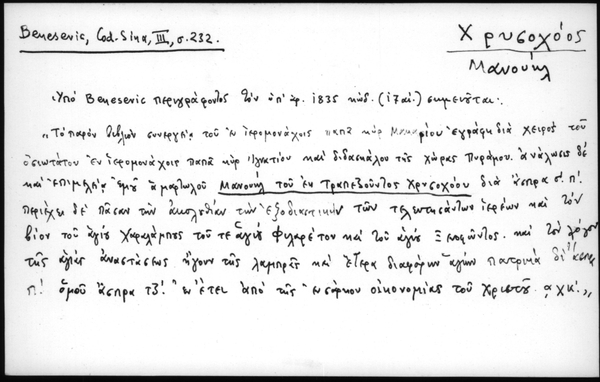 Benesevic, Cod. Sina, III, σ. 232.
Χρυσοχόος
Μανουήλ
Ὑπό Benesevic περιγράφοντος τὸν ὑπ' ἀρ. 1835 κώδ. (17 αἰ.) σημειοῦται:
"Τὸ παρὸν βιβλίον συνεργείᾳ τοῦ ἐν ἱερομονάχοις παπᾶ κὺρ Μακαρίου ἐγράφη διὰ χειρὸς τοῦ
ὁσιωτάτου ἐν ἱερομονάχοις παπᾶ κὺρ Ἰγνατίου καὶ διδασκάλου τῆς χώρας Πυράμου. ἀνάλωσις δὲ
καὶ ἐπιμελείᾳ ἐμοῦ ἁμαρτωλοῦ Μανουὴλ τοῦ ἐκ Τραπεζοῦντος Χρυσοχόου διὰ ἄσπρα σ'. π'.
περιέχει δὲ πᾶσαν τὴν ἀκολουθίαν τὴν ἐξοδιαστικὴν τῶν τελευτησάντων ἱερέων καὶ τὸν
βίον τοῦ ἁγίου Χαραλάμπους τοῦ τε ἁγίου Φιλαρέτου καὶ τοῦ ἁγίου Ξενοφῶντος. καὶ τὸν λόγον
τῆς ἁγίας ἀναστάσεως ἤγουν τῆς λαμπρᾶς καὶ ἕτερα διαφόρων ἁγίων πατρικὰ δι' ἄσπρ
π'. ὁμοῦ ἄσπρα τξ'. ἐν ἔτει ἀπὸ τῆς ἐνσάρκου οἰκονομίας τοῦ Χριστοῦ ͵αχκ'.,,